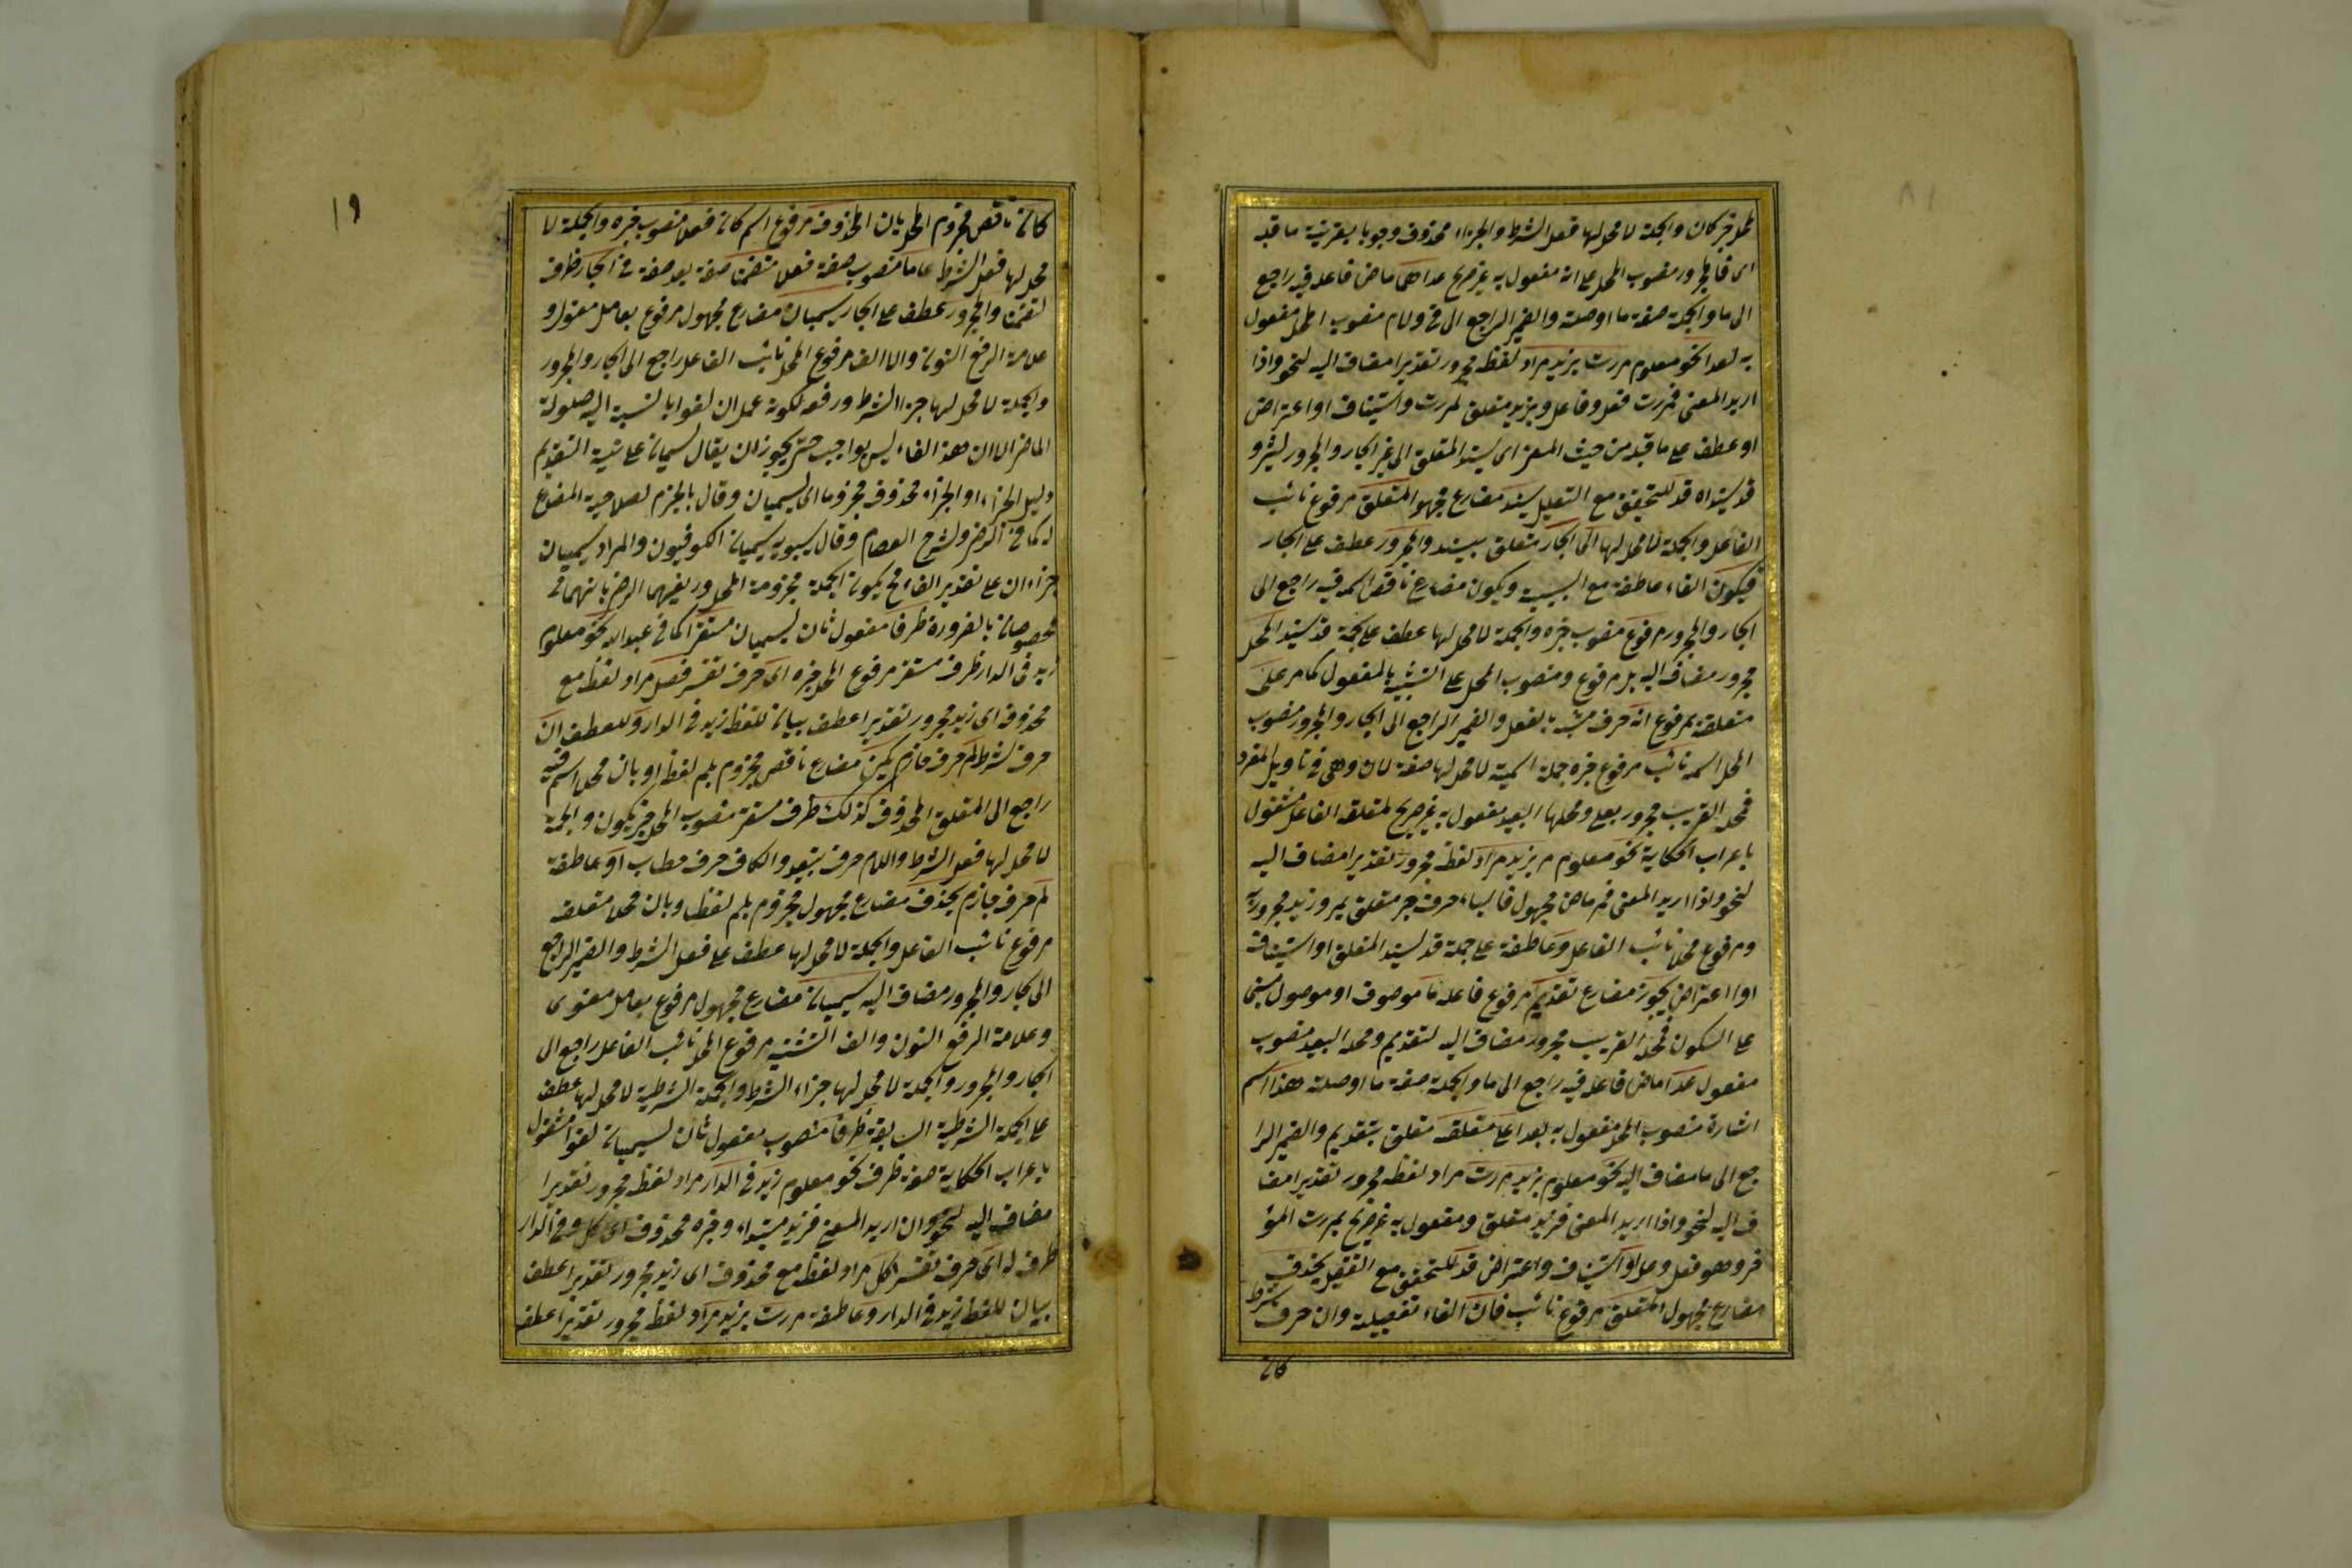 كان والجملة لا محل لها فعل الشرط والجزاء محذوف وجوبا بقرينة ما قبله
منصوب المحل على انه مفعول به غير صريح عدا ماض فاعله فيه راجع
الى ما والجملة صفة ما او صلة والضمير الراجع الى منصوب المحل مفعول
به لعدا نحو معلوم مررت بزيد مراد لفظه مجرور تقديرا مضاف اليه لنحو واذا
اريد المعنى فمررت فعل وفاعل وبزيد متعلق لمررت واستيناف او اعتراض
او عطف على ما قبله من حيث المعنى اى يسند المتعلق الى غير الجار والمجرور
قد للتحقيق مع التقليل يسند مضارع مجهول المتعلق مرفوع نائب
الفاعل والجملة لا محل لها الى الجار متعلق بيسند والمجرور عطف على الجار
فيكون الفاء عاطفة مع السببية ويكون مضارع ناقص اسمه فيه راجع الى
الجار والمجرور مرفوع منصوب خبره والجملة لا محل لها عطف على جملة قد يسند المحل
مجرور مضاف اليه بل مرفوع ومنصوب المحل على التشبيه بالمفعول كما مر على
متعلقة بمرفوع انه حرف مشبه بالفعل والضمير الراجع الى الجار والمجرور منصوب
المحل اسمه نائب مرفوع خبره جملة اسمية لا محل لها صفة لان وهى فى تاويل المفرد
فمحله القريب مجرور بعلى ومحلها البعيد مفعول به غير صريح لمتعلقه الفاعل مشغول
باعراب الحكاية نحو معلوم مر بزيد مراد لفظه مجرور تقديرا مضاف اليه
لنحو واذا اريد المعنى فمر ماض مجهول فالباء حرف جر متعلق بمر وزيد مجرور به
ومرفوع محلا نائب الفاعل وعاطفة على جملة قد يسند المتعلق او استينافية
او اعتراض يجوز مضارع تقديم مرفوع فاعله ما موصوف او موصول مبنى
على السكون فمحله القريب مجرور مضاف اليه لتقديم ومحله البعيد منصوب
مفعول عدا ماض فاعله فيه راجع الى ما والجملة صفة ما او صلة هذا اسم
اشارة منصوب المحل مفعول به لعدا على متعلقه متعلق بتقديم والضمير الرا
جع الى ما مضاف اليه نحو معلوم بزيد مررت مراد لفظه مجرور تقديرا مضا
ف اليه لنحو واذا اريد المعنى فبزيد متعلق ومفعول به غير صريح بمررت المؤ
خر وهو فعل وفاعل او استيناف واعتراض قد للتحقيق مع التقليل يحذف
مضارع مجهول المتعلق مرفوع نائب فان الفاء تفصيلية وان حرف شرط
كان
١٩
كان ناقص مجزوم المحل بان المحذوف مرفوع اسم كان فعلا منصوب خبره والجملة لا
محل لها فعل الشرط عاما منصوب صفة فعلا متضمنا صفة بعد صفة فى الجار ظرف
لمتضمنا والمجرور عطف على الجار يسميان مضارع مجهول مرفوع بعامل معنوى و
علامة الرفع النون والالف مرفوع المحل نائب الفاعل راجع الى الجار والمجرور
والجملة لا محل لها جزاء الشرط ورفعه لكونه
الا ان هذا الفاء ليس بواجب حتى يجوز ان يقال يسميان على نية التقديم
دليل الجزاء او الجزاء محذوف مجزوما اى يسميان وقال بالجزم لصلاحية المضارع
له كما فى الرضى وشرح العصام وقال سيبويه يسميان الكوفيون والمراد يسميان
جزاء ان على تقدير الفاء فح يكون الجملة مجزومة المحل
بالضرورة ظرفا مفعول ثان ليسميان مستقرا كما فى عبد الله نحو معلوم
زيد فى الدار ظرف مستقر مرفوع المحل خبره اى حرف تفسير حصل مراد لفظه مع
محذوفه اى زيد مجرور تقديرا عطف بيان للفظ زيد فى الدار وللعطف ان
حرف شرط لم حرف جازم يكن مضارع ناقص مجزوم بلم لفظا وبان محلا اسمه فيه
راجع الى المتعلق المحذوف كذلك ظرف مستقر منصوب المحل خبر يكون والجملة
لا محل لها فعل الشرط واللام حرف تبعيد والكاف حرف خطاب او عاطفة
لم حرف جازم يحذف مضارع مجهول مجزوم بلم لفظا وبان محلا متعلقه
مرفوع نائب الفاعل والجملة لا محل لها عطف على فعل الشرط والضمير الراجع
الى الجار والمجرور مضاف اليه يسميان مضارع مجهول مرفوع بعامل معنوى
وعلامة الرفع النون والف التثنية مرفوع المحل نائب الفاعل راجع الى
الجار والمجرور والجملة لا محل لها جزاء الشرط والجملة الشرطية لا محل لها عطف
على الجملة الشرطية السابقة ظرفا منصوب مفعول ثان ليسميان لغوا مشغول
باعراب الحكاية صفة ظرف نحو معلوم زيد فى الدار مراد لفظه مجرور تقديرا
مضاف اليه لنحو وان اريد المعنى فزيد مبتداء وخبره محذوف اى اكل وفى الدار
ظرف له اى حرف تفسير اكل مراد لفظه مع محذوف اى زيد مجرور تقديرا عطف
بيان للفظ زيد فى الدار وعاطفة مررت بزيد مراد لفظه مجرور تقديرا عطف